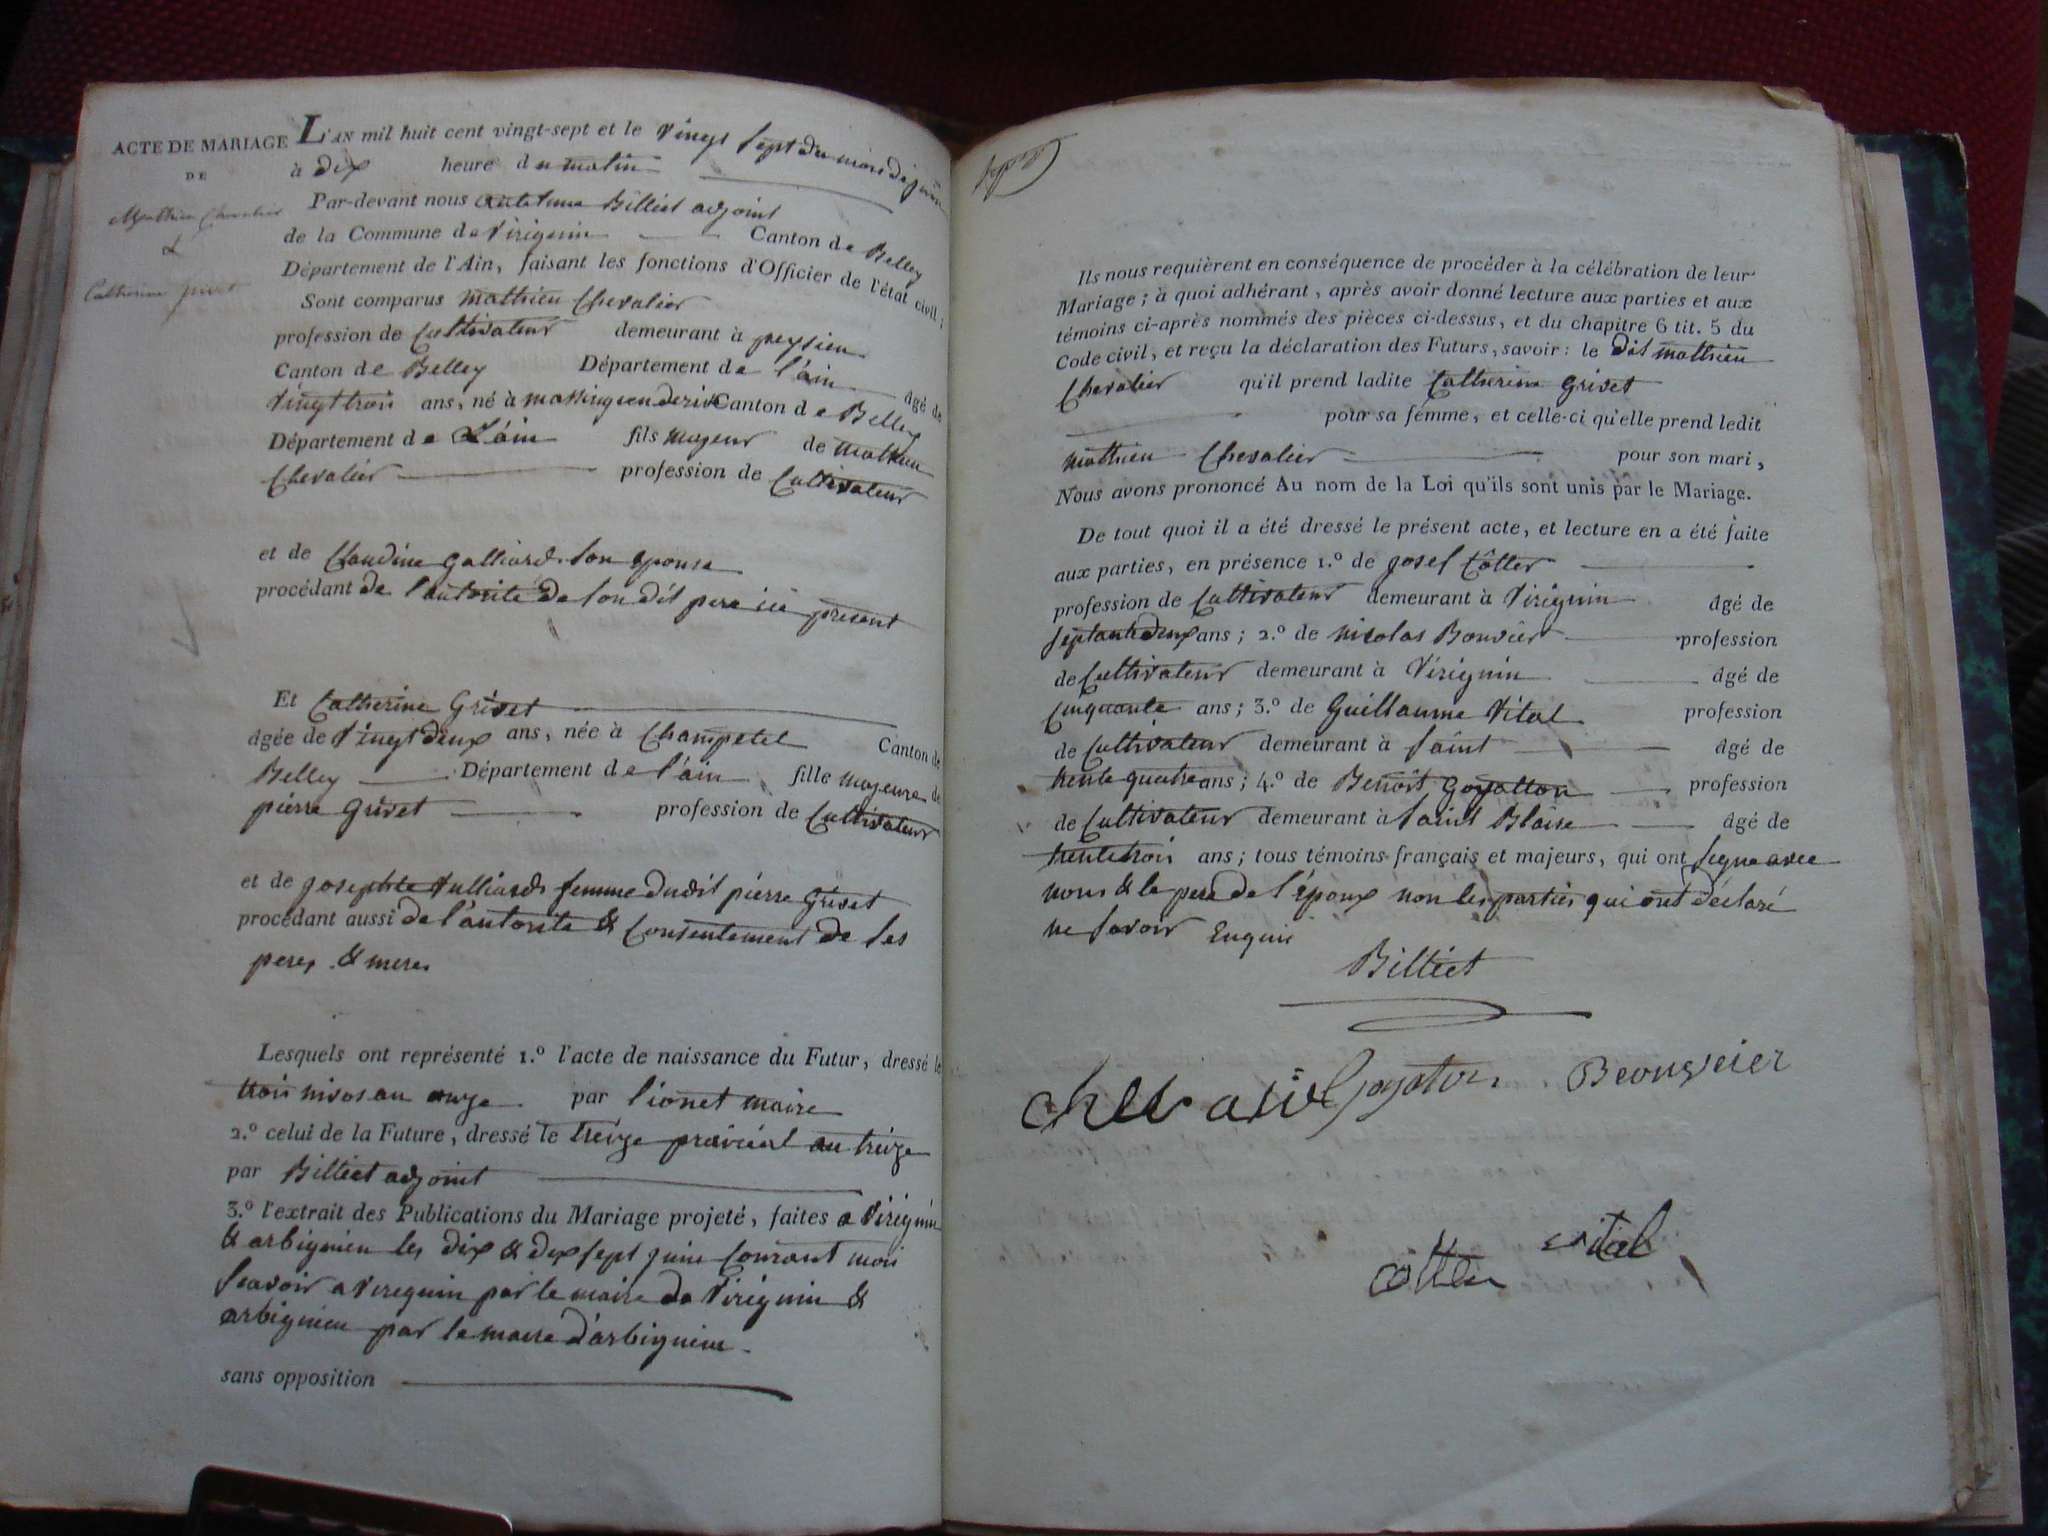 ACTE DE MARIAGE
DE
Mathieu Chevalier
&
Catherine grivet
L'AN mil huit cent vingt-sept et le vingt sept du mois de juin
à dix heure du matin
Par-devant nous anthelme Billiet adjoint
de la Commune de Virignin Canton de Belley
Département de l'Ain, faisant les fonctions d'Officier de l'état civil;
Sont comparus mathieu Chevalier
profession de Cultivateur demeurant à peysieu
Canton de Belley Département de l'ain âgé de
vingt trois ans, né à massignieu de rive Canton de Belley
Département de L'ain fils majeur de mathieu
Chevalier profession de Cultivateur
et de Claudine galliard son epouse
procédant de l'autorité de son dit pere ici present
Et Catherine Grivet
âgée de vingt deux ans, née à Champetel Canton de
Belley Département de l'ain fille majeure de
pierre grivet profession de Cultivateur
et de Josephte Vulliard femme dudit pierre Grivet
procédant aussi de l'autorité & Consentement de ses
peres & meres
Lesquels ont représenté 1.º l'acte de naissance du Futur, dressé le
trois nivos an onze par lionet maire
2.º celui de la Future, dressé le treize prairial an treize
par Billiet adjoint
3.º l'extrait des Publications du Mariage projeté, faites a Virignin
& arbignieu les dix & dix sept juin Courant mois
scavoir a Vireguin par le maire de Virignin &
arbignieu par le maire d'arbignieu
sans opposition
Ils nous requièrent en conséquence de procéder à la célébration de leur
Mariage; à quoi adhérant, après avoir donné lecture aux parties et aux
témoins ci-après nommés des pièces ci-dessus, et du chapitre 6 tit. 5 du
Code civil, et reçu la déclaration des Futurs, savoir: le dit mathieu
Chevalier qu'il prend ladite Catherine grivet
pour sa fémme, et celle-ci qu'elle prend ledit
mathieu Chevalier pour son mari,
Nous avons prononcé Au nom de la Loi qu'ils sont unis par le Mariage.
De tout quoi il a été dressé le présent acte, et lecture en a été faite
aux parties, en présence 1.º de josef Côtter
profession de Cultivateur demeurant à Virignin âgé de
septante deux ans; 2.º de nicolas Bouvier profession
de Cultivateur demeurant à Virignin âgé de
cinquante ans; 3.º de Guillaume Vital profession
de Cultivateur demeurant à saint âgé de
trente quatre ans; 4.º de Benoit goyatton profession
de Cultivateur demeurant à saint Blaise âgé de
trente trois ans; tous témoins français et majeurs, qui ont signe avec
nous & le pere de l'époux non les parties qui ont déclaré
ne savoir Enquis
Billiet
chevalié goyaton Beouveier
côtter vital